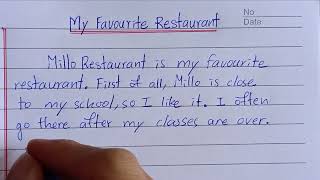 My Favourite Restaurant
No
Date
Millo Restaurant is my favourite
restaurant. First of all, Millo is close
to my school, so I like it. I often
go there after my classes are over.